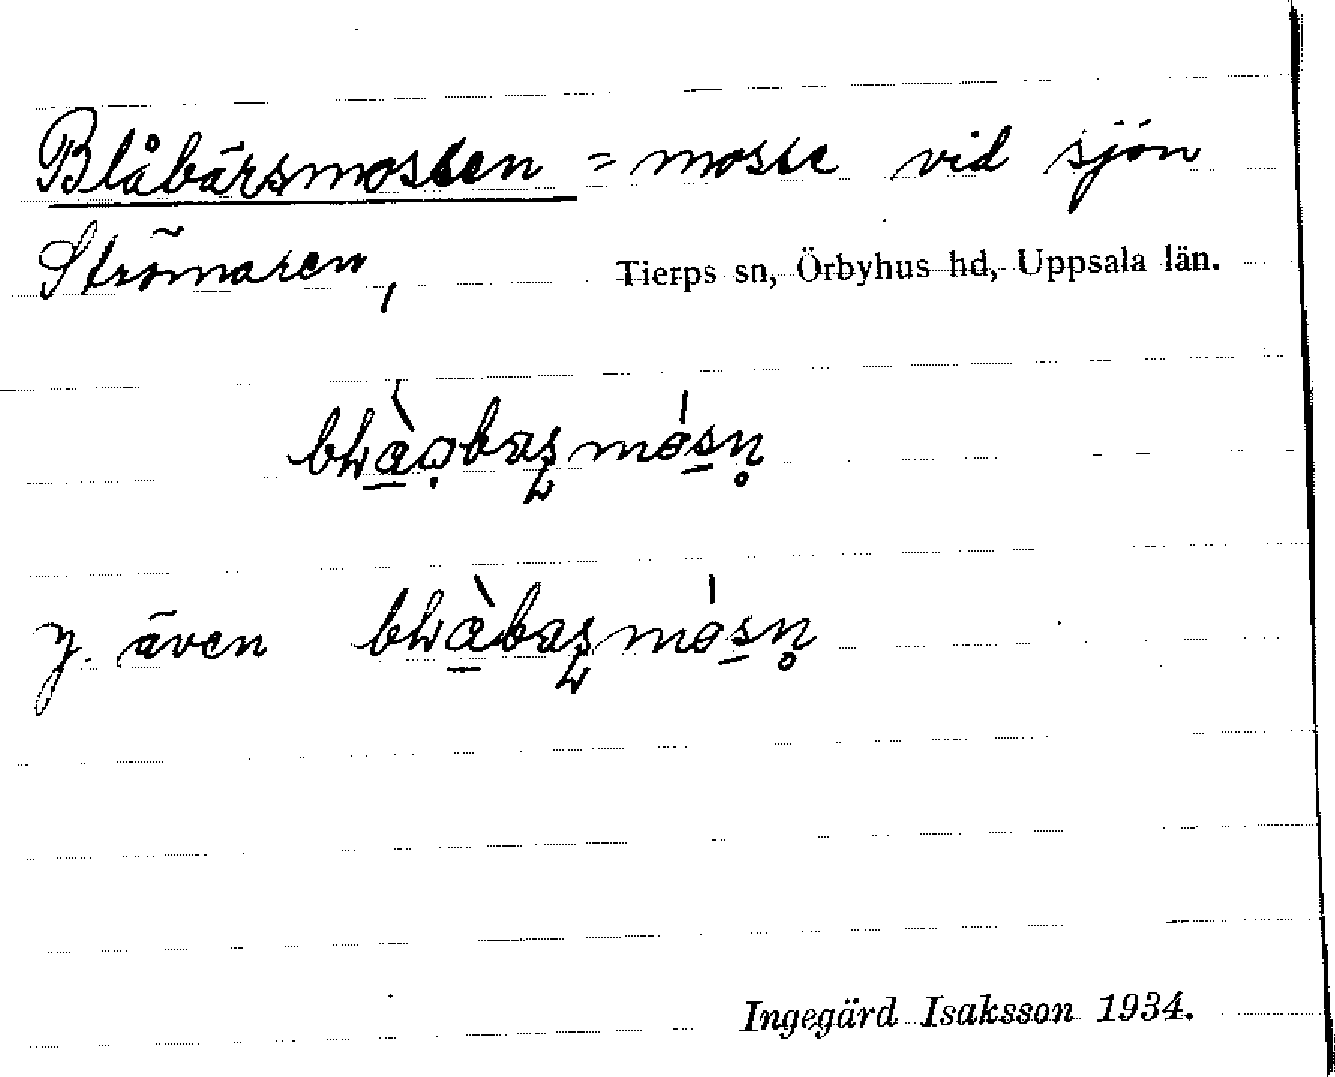 Blåbärsmossen = mosse vid sjön
Strömaren, Tierps sn, Örbyhus hd, Uppsala län.
y. även
Ingegärd Isaksson 1934.